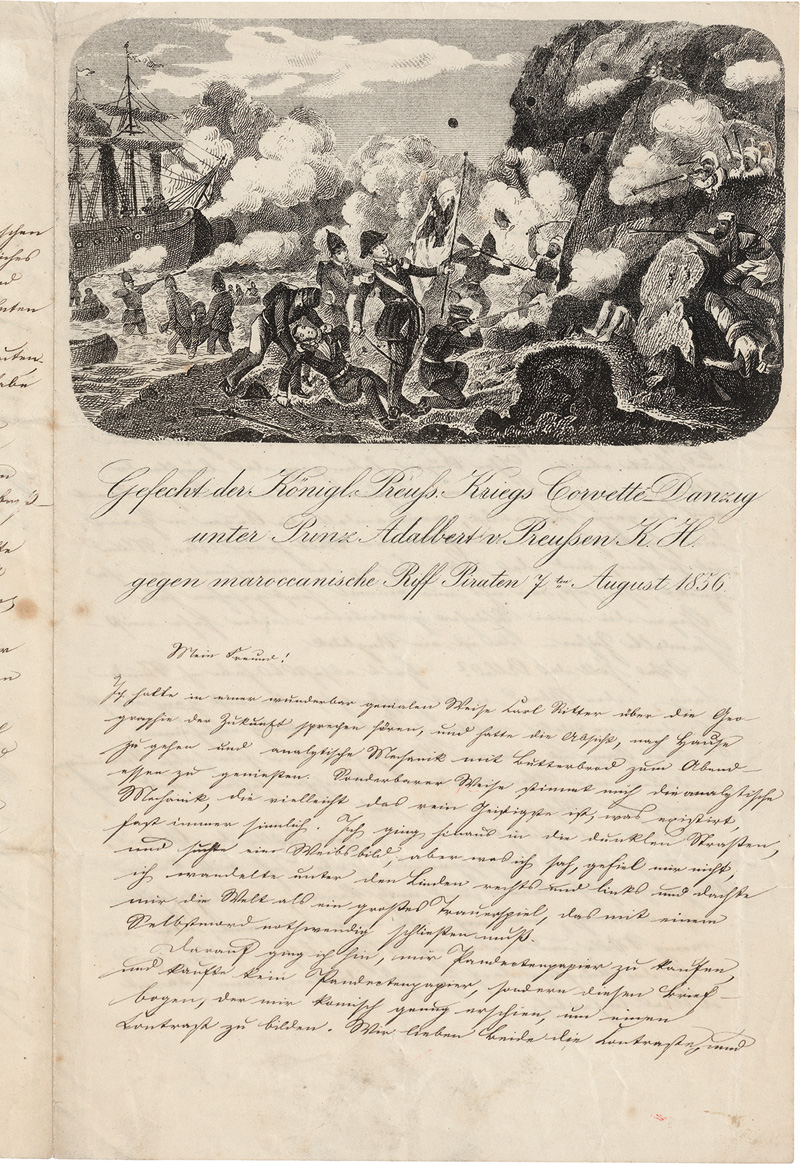 Gefecht der Königl. Preuß. Kriegs Corvette Danzig
unter Prinz Adalbert v. Preußen K. H.
gegen maroccanische Riff Piraten 7ten August 1856.
Mein Freund!
Ich hatte in einer wunderbar genialen Weise Carl Ritter über die Geo-
graphie der Zukunft sprechen hören, und hatte die Absicht, nach Hause
zu gehen und analytische Mechanik mit Butterbrod zum Abend-
essen zu genießen. Sonderbarer Weise stimmt mich die analytische
Mechanik, die vielleicht das rein Geistigste ist, was existirt,
fast immer sinnlich. Ich ging hinaus in die dunklen Straßen,
und suchte ein Weibsbild, aber was ich sah, gefiel mir nicht,
ich wandelte unter den Linden rechts und links und dachte
mir die Welt als ein großes Trauerspiel, das mit einem
Selbstmord nothwendig schließen muß.
Darauf ging ich hin, mir Pandectenpapier zu kaufen,
und kaufte kein Pandectenpapier, sondern diesen Brief-
bogen, der mir komisch genug erschien, um einen
Contrast zu bilden. Wir lieben beide die Contraste, und